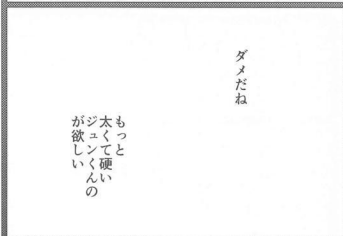 ダメだね
もっと
太くて硬い
ジュンくんの
が欲しい